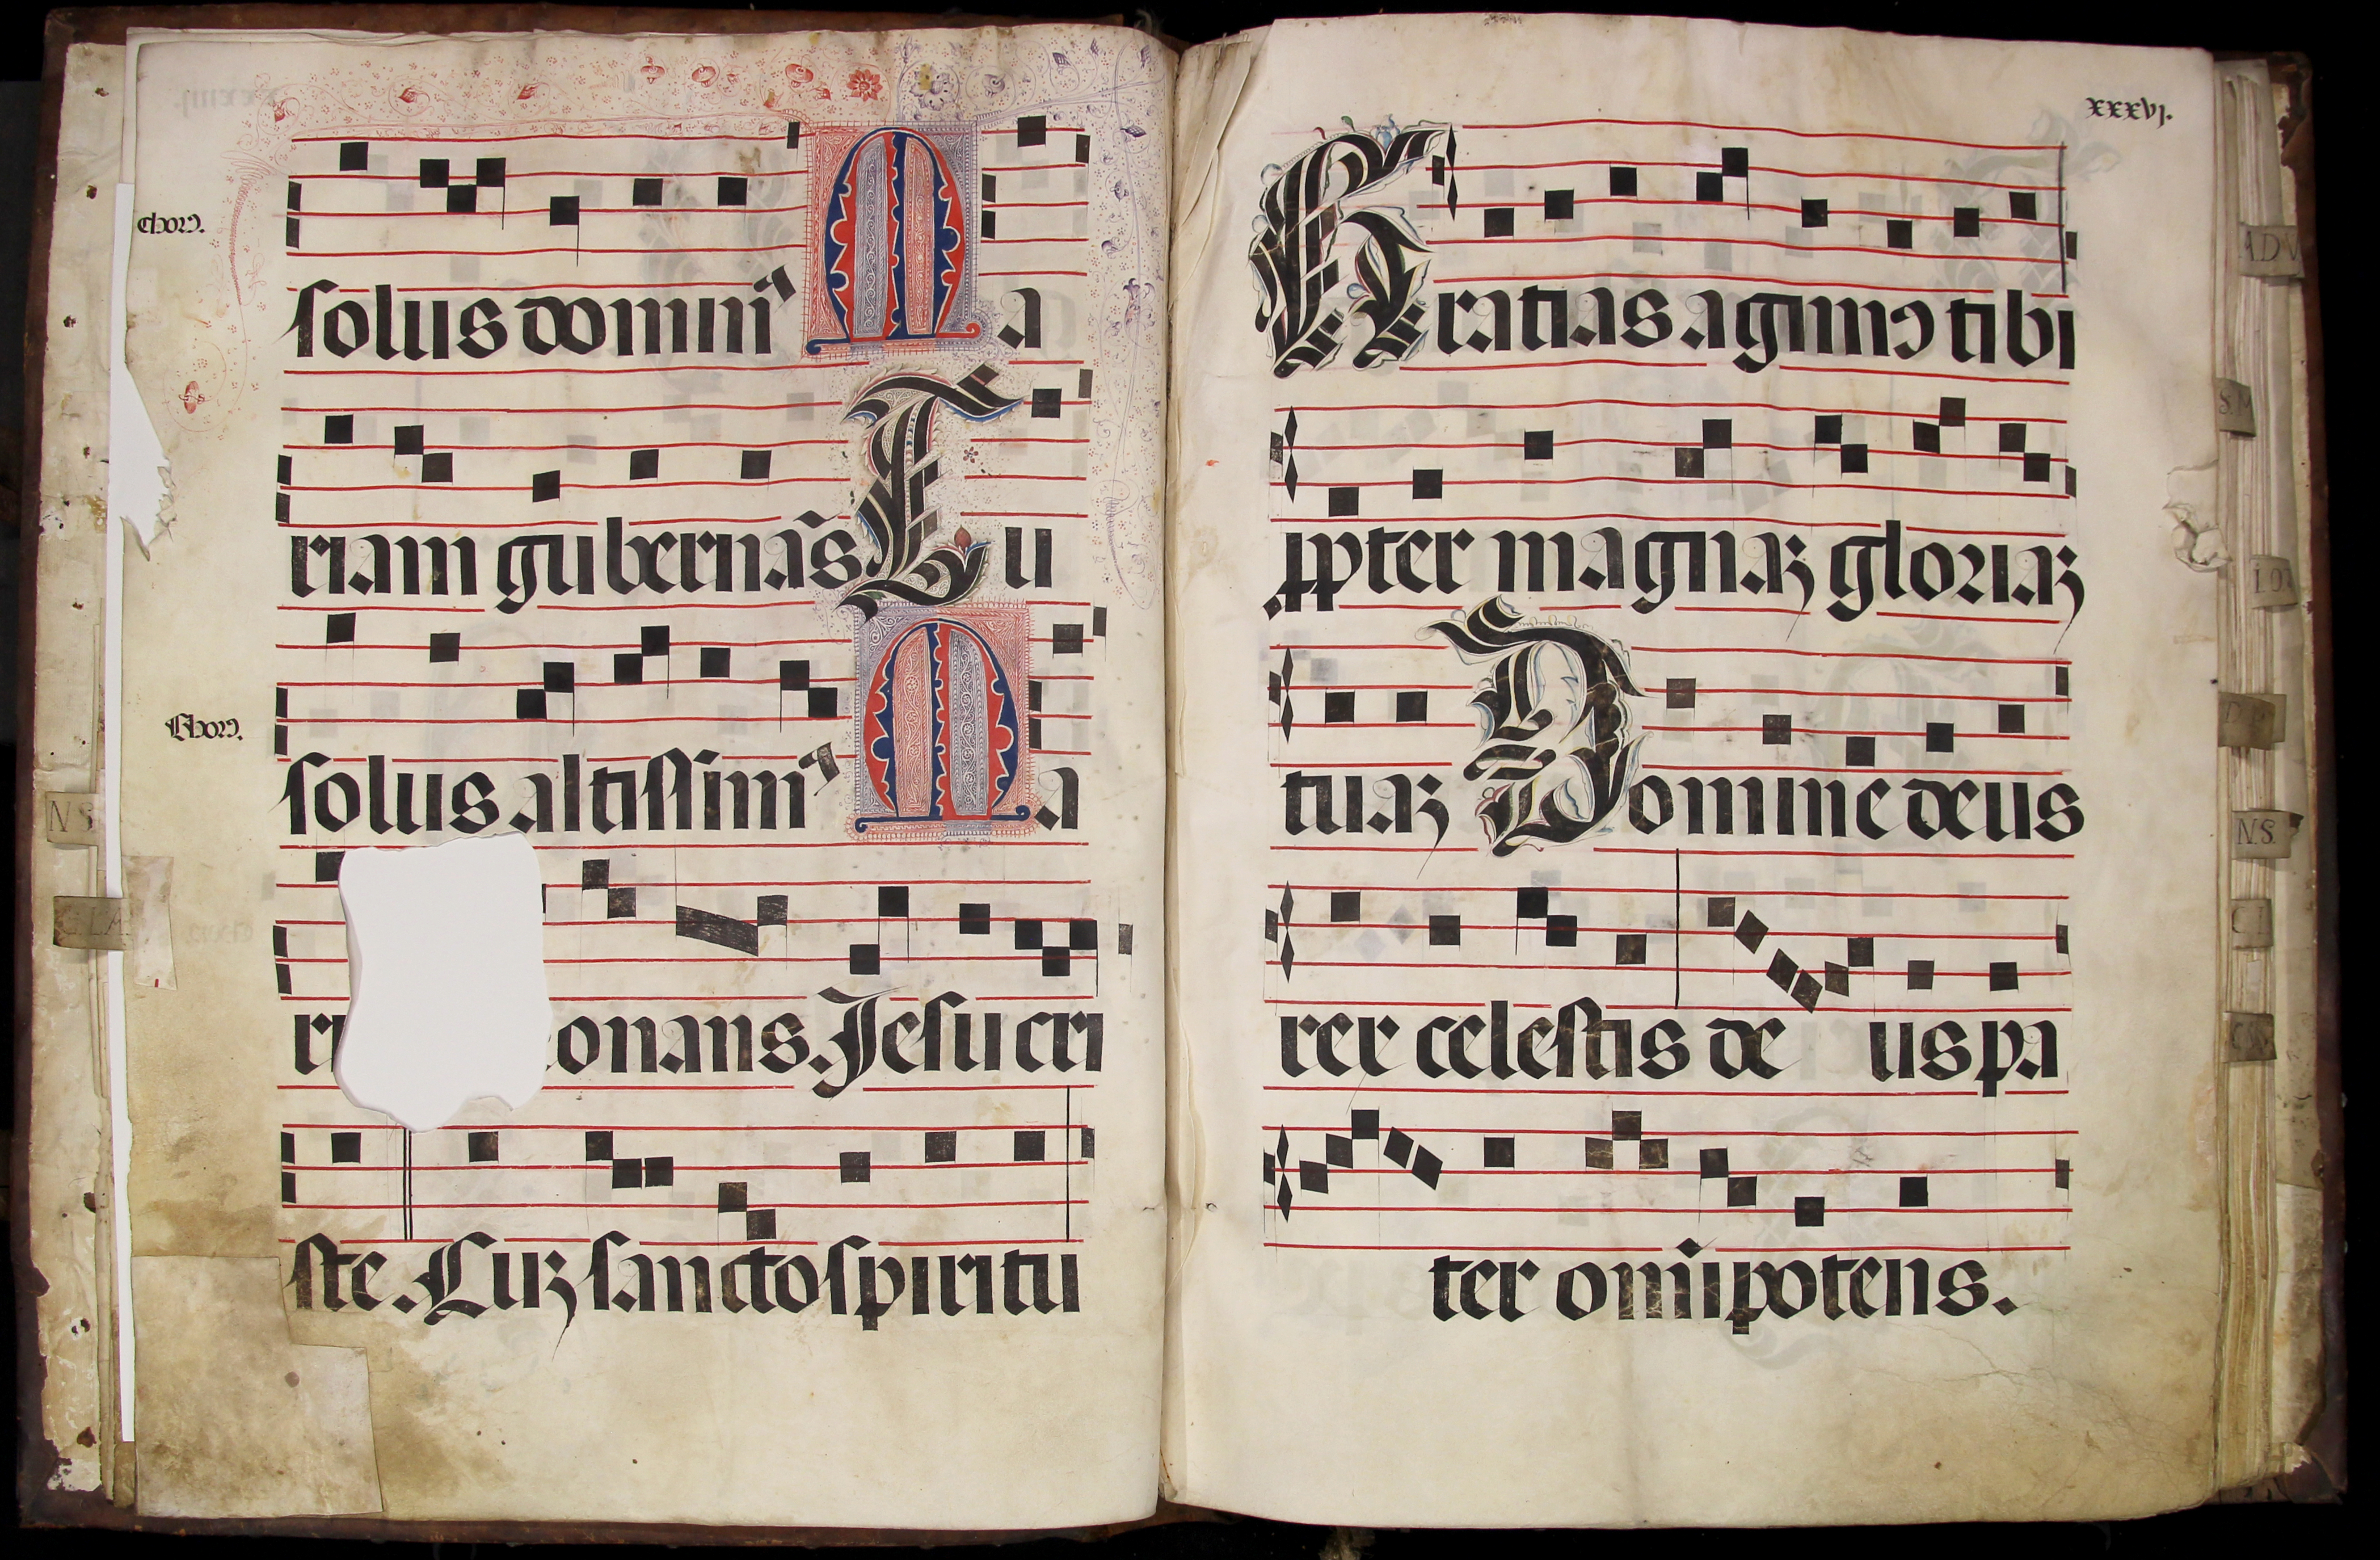 Choꝝ.
solus domin⁹ Ma
riam gubernãs Tu
Choꝝ.
solus altissim⁹ Ma
ri onans. Jesu cri
ste. Cuʒ sancto spiritu
xxxvj.
Gratias agimꝰ tibi
ꝓpter magnaʒ gloriaʒ
tuaʒ Domine deus
rex celestis de us pa
ter omĩpotens.
N.S
C.LM.
ADV
S.M
N.S.